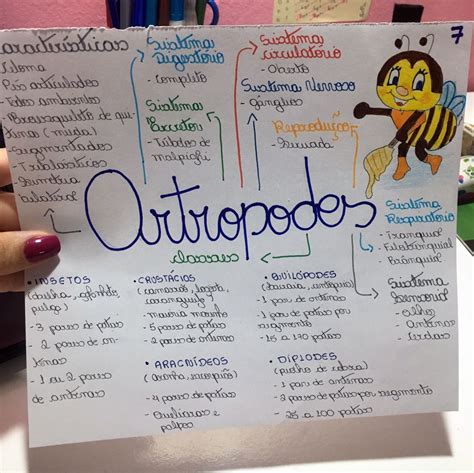 7
aracterísticas
Celoma
Pés articulados
Todos ambientes
Exoesqueleto de qui-
tina (muda)
Segmentados
Triblásticos
Simetria
bilateral
Sistema
Digestório
- Completo
Sistema
Excretor
- Túbulos de
malpighi
Sistema
Circulatório
- Aberto
Sistema Nervoso
- Gânglios
Reprodução
- Sexuada
Artrópodes
Classes
Sistema
Respiratório
- Traqueal
- Filotraqueal
- Branquial
Sistema
Sensorial
- Olhos
- Antenas
- Cerdas
• INSETOS
pulga)
- 3 pares de patas
- 2 pares de
antenas
• CRUSTÁCEOS
(camarão, lagosta,
caranguejo)
- maioria marinho
- 5 pares de patas
- 2 pares de antenas
• ARACNÍDEOS
(aranha, escorpião)
- 4 pares de patas
- Quelíceras e
palpos
• QUILÓPODES
(lacraia, centopeia)
- 1 par de antenas
- 1 par de patas
- 15 a 170 patas
• DIPLODES
(piolho de cobra)
- 1 par de antenas
- 2 pares de patas por segmento
- 25 a 100 patas